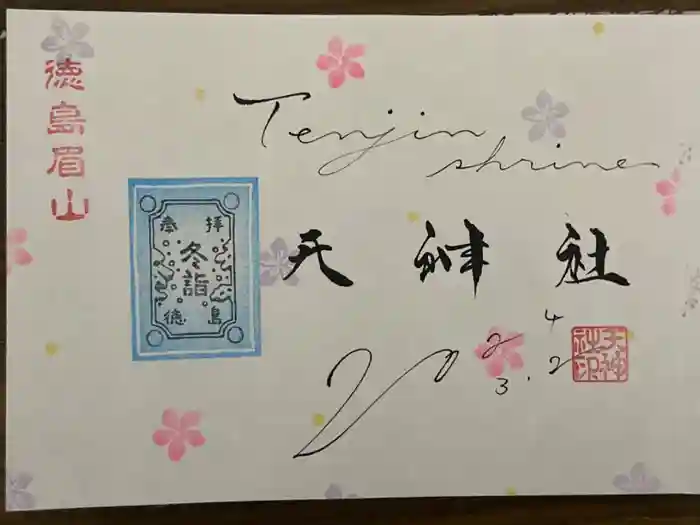 徳島眉山
奉拝
冬詣
徳島
Tenjin
shrine
天神社
4
2
3.2
天神
社印